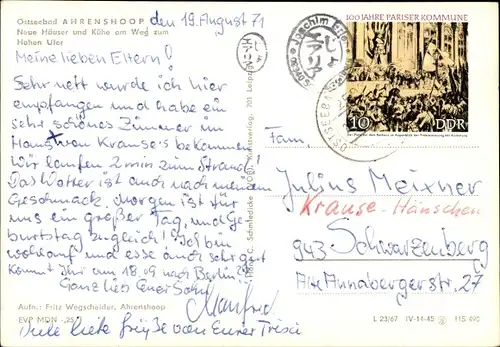 Ostseebad AHRENSHOOP
Neue Häuser und Kühe am Weg zum
Hohen Ufer
den 19. August 71
Meine lieben Eltern!
Sehr nett wurde ich hier
empfangen und habe ein
sehr schönes Zimmer im
Haus von Krause's bekommen
Wir laufen 2 min zum Strand!
Das Wasser ist auch nach meinem
Geschmack. Morgen ist für
uns ein großer Tag, und Ge-
burtstag zugleich! Ich bin
wohlauf und esse auch sehr gut
Kommt Ihr am 18.09 nach Berlin?
Ganz lieb Euer Sohn
Manfred
Viele liebe Grüße von Eurer
Aufn.: Fritz Wegscheider, Ahrenshoop
EVP MDN -,25
100 JAHRE PARISER KOMMUNE
10 DDR
OSTSEEBAD
Fam.
Julius Meixner
Krause-Hänschen
943 Schwarzenberg
Alte Annaberger str. 27
L 23/67 IV-14-45 HS 490